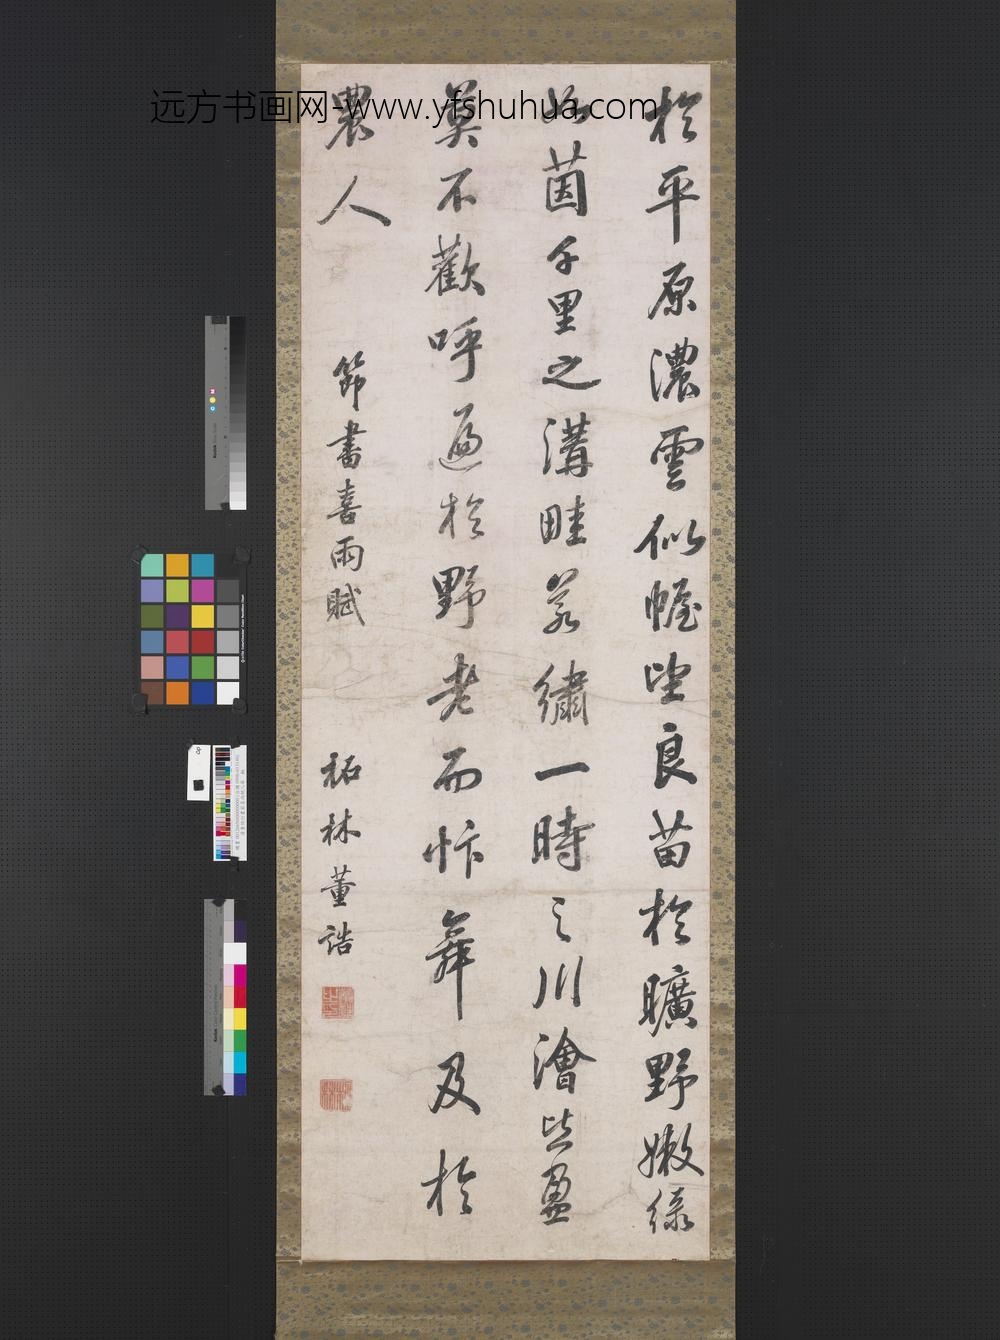 远方书画网-www.yfshuhua.com
於平原濃雲似幄望良苗於曠野嫩綠
如茵千里之溝畦若繡一時之川澮皆盈
莫不歡呼遍於野老而忭舞及於
農人
節書喜雨賦
柘林董誥